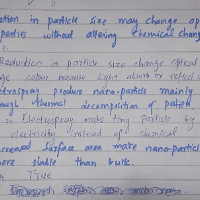 ction in particle size may change op
perties without altering chemical chang
Reduction in particle size change optical
ge colour because light absorb or reflect
ctrospray produce nano-particle mainly
ough thermal decomposition of
Electrospray make tiny particle by
electricity instead of chemical
creased surface area make nano-particl
ore stable than bulk.
True